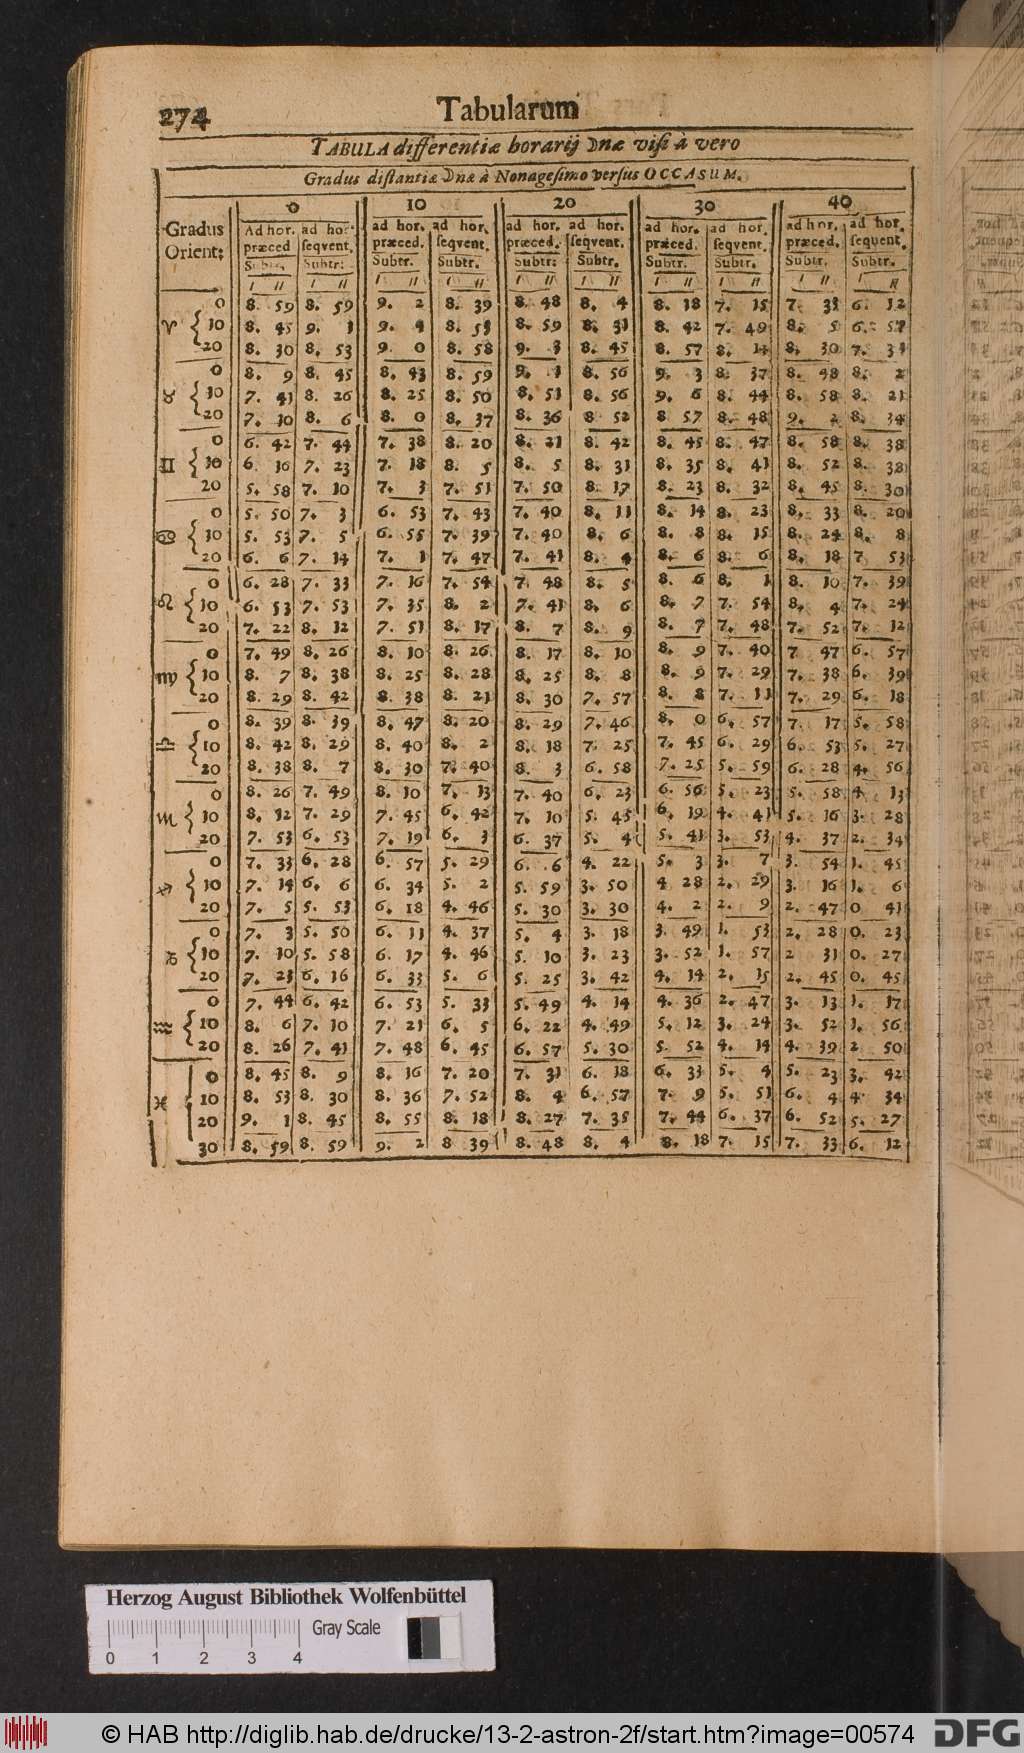 274 Tabularum
TABULA differentiæ horarij ☽næ visi à vero
Gradus distantiæ ☽næ à Nonagesimo versus OCCASUM.
Gradus Orient: 0 10 20 30 40
Ad hor. præced ad hor. seqvent. ad hor. præced. ad hor. seqvent. ad hor. præced. ad hor. seqvent. ad hor. præced. ad hor. seqvent. ad hor. præced. ad hor. sequent.
Subtr. Subtr: Subtr. Subtr. Subtr: Subtr. Subtr. Subtr. Subtr. Subtr.
I II I II I II I II I II I II I II I II I II I II
0 8. 59 8. 59 9. 2 8. 39 8. 48 8. 4 8. 18 7. 15 7. 33 6. 12
♈ 10 8. 45 9. 1 9. 4 8. 53 8. 59 8. 31 8. 42 7. 49 8. 5 6. 57
20 8. 30 8. 53 9. 0 8. 58 9. 3 8. 45 8. 57 8. 14 8. 30 7. 31
0 8. 9 8. 45 8. 43 8. 59 9. 1 8. 56 9. 3 8. 37 8. 48 8. 2
♉ 10 7. 41 8. 26 8. 25 8. 50 8. 51 8. 56 9. 6 8. 44 8. 58 8. 21
20 7. 10 8. 6 8. 0 8. 37 8. 36 8 52 8 57 8. 48 9. 2 8. 34
0 6. 42 7. 44 7. 38 8. 20 8. 21 8. 42 8. 45 8. 47 8. 58 8. 38
♊ 10 6. 16 7. 23 7. 18 8. 5 8. 5 8. 31 8. 35 8. 41 8. 52 8. 38
20 5. 58 7. 10 7. 3 7. 51 7. 50 8. 17 8. 23 8. 32 8. 45 8. 30
0 5. 50 7. 3 6. 53 7. 43 7. 40 8. 11 8. 14 8. 23 8. 33 8. 20
♋ 10 5. 53 7. 5 6. 55 7. 39 7. 40 8. 6 8. 8 8. 15 8. 24 8. 8
20 6. 6 7. 14 7. 1 7. 47 7. 41 8. 4 8. 6 8. 6 8. 18 7 53
0 6. 28 7. 33 7. 16 7. 54 7. 48 8. 5 8. 6 8. 1 8. 10 7. 39
♌ 10 6. 53 7. 53 7. 35 8. 2 7. 41 8. 6 8. 7 7. 54 8. 4 7. 24
20 7. 22 8. 12 7. 51 8. 17 8. 7 8. 9 8. 7 7. 48 7. 52 7. 12
0 7. 49 8. 26 8. 10 8. 26 8. 17 8. 10 8. 9 7. 40 7 47 6. 57
♍ 10 8. 7 8. 38 8. 25 8. 28 8. 25 8. 8 8. 9 7. 29 7. 38 6. 39
20 8. 29 8. 42 8. 38 8. 21 8. 30 7. 57 8. 8 7. 11 7. 29 6. 18
0 8. 39 8. 39 8. 47 8. 20 8. 29 7. 46 8. 0 6. 57 7. 17 5. 58
♎ 10 8. 42 8. 29 8. 40 8. 2 8. 18 7. 25 7. 45 6. 29 6. 53 5. 27
20 8. 38 8. 7 8. 30 7. 40 8. 3 6. 58 7. 25 5. 59 6. 28 4. 56
0 8. 26 7. 49 8. 10 7. 13 7. 40 6. 23 6. 56 5. 23 5. 58 4. 13
♏ 10 8. 12 7. 29 7. 45 6. 42 7. 10 5. 45 6. 19 4. 41 5. 16 3. 28
20 7. 53 6. 53 7. 19 6. 3 6. 37 5. 4 5. 41 3. 53 4. 37 2. 34
0 7. 33 6. 28 6. 57 5. 29 6. 6 4. 22 5. 3 3. 7 3. 54 1. 45
♐ 10 7. 14 6. 6 6. 34 5. 2 5. 59 3. 50 4 28 2. 29 3. 16 1. 6
20 7. 5 5. 53 6. 18 4. 46 5. 30 3. 30 4. 2 2. 9 2. 47 0 41
0 7. 3 5. 50 6. 11 4. 37 5. 4 3. 18 3. 49 1. 53 2. 28 0. 23
♑ 10 7. 10 5. 58 6. 17 4. 46 5. 10 3. 23 3. 52 1. 57 2 31 0. 27
20 7. 23 6. 16 6. 33 5. 6 5. 25 3. 42 4. 14 2. 15 2. 45 0. 45
0 7. 44 6. 42 6. 53 5. 33 5. 49 4. 14 4. 36 2. 47 3. 13 1. 17
♒ 10 8. 6 7. 10 7. 21 6. 5 6. 22 4. 49 5. 12 3. 24 3. 52 1. 56
20 8. 26 7. 41 7. 48 6. 45 6. 57 5. 30 5. 52 4. 14 4. 39 2. 50
0 8. 45 8. 9 8. 16 7. 20 7. 31 6. 18 6. 33 5. 4 5. 23 3. 42
♓ 10 8. 53 8. 30 8. 36 7. 52 8. 4 6. 57 7. 9 5. 51 6. 4 4. 34
20 9. 1 8. 45 8. 55 8. 18 8. 27 7. 35 7. 44 6. 37 6. 52 5. 27
30 8. 59 8. 59 9. 2 8 39 8. 48 8. 4 8. 18 7. 15 7. 33 6. 12
Herzog August Bibliothek Wolfenbüttel
Gray Scale
0 1 2 3 4
© HAB http://diglib.hab.de/drucke/13-2-astron-2f/start.htm?image=00574 DFG